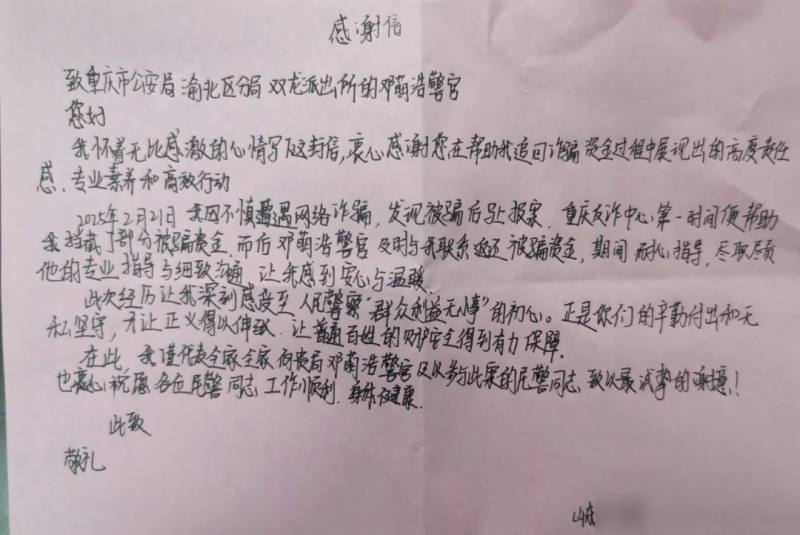 感谢信
致重庆市公安局渝北区分局双龙派出所的邓萌浩警官
您好
我怀着无比感激的心情写下这封信,衷心感谢您在帮助我追回诈骗资金过程中展现出的高度责任
感、专业素养和高效行动
2025年2月21日我因不慎遭遇网络诈骗,发现被骗后马上报案.重庆反诈中心第一时间便帮助
我拦截了部分被骗资金.而后邓萌浩警官及时与我联系返还被骗资金,期间耐心指导,尽职尽责
他的专业指导与细致沟通,让我感到安心与温暖.
此次经历让我深刻感受到人民警察“群众利益无小事”的初心。正是你们的辛勤付出和无
私坚守,才让正义得以伸张.让普通百姓的财产安全得到有力保障.
在此,我谨代表全家全家向贵局邓萌浩警官及以参与此案的民警同志致以最诚挚的谢意!
也衷心祝愿各位民警同志工作顺利.身体健康.
此致
敬礼